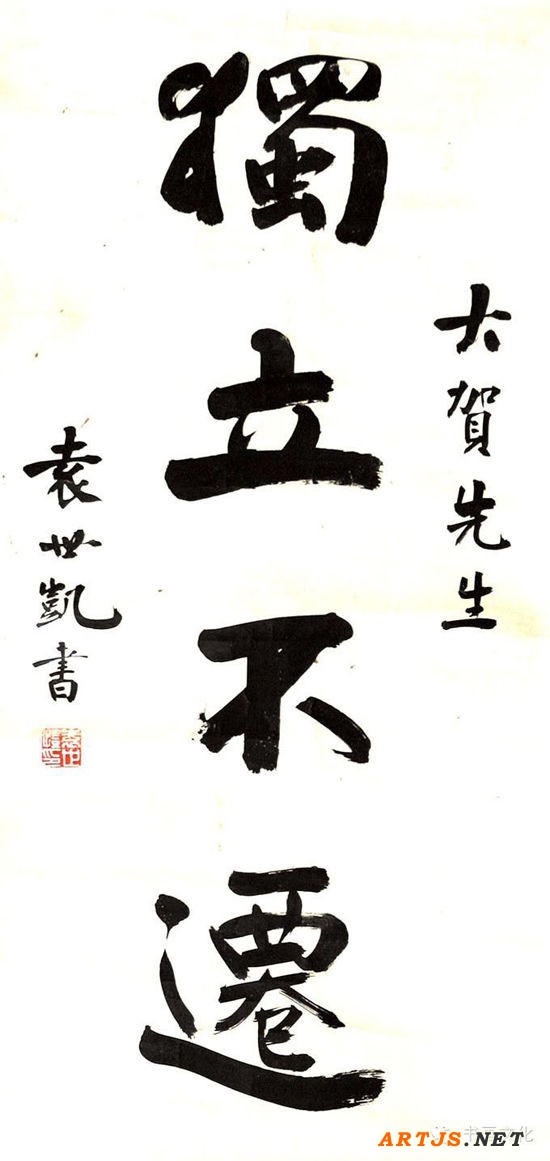 大賀先生
獨立不遷
袁世凱書
ARTJS.NET